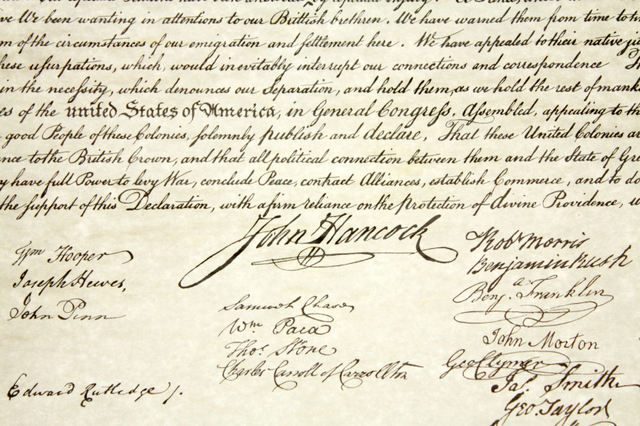 ve We been wanting in attentions to our Brittish brethren. We have warned them from time to t
m of the circumstances of our emigration and settlement here. We have appealed to their native ju
hese usurpations, which, would inevitably interrupt our connections and correspondence
in the necessity, which denounces our Separation, and hold them, as we hold the rest of mank
es of the united States of America, in General Congress, Assembled, appealing to th
good People of these Colonies, solemnly publish and declare, That these United Colonies ar
nce to the British Crown, and that all political connection between them and the State of Gre
y have full Power to levy War, conclude Peace, contract Alliances, establish Commerce, and to do
the support of this Declaration, with a firm reliance on the Protection of divine Providence, w
John Hancock
Wm Hooper
Joseph Hewes,
John Penn
Edward Rutledge /.
Samuel Chase
Wm. Paca
Thos. Stone
Charles Carroll of Carrollton
Robt Morris
Benjamin Rush
Benja. Franklin
John Morton
Geo Clymer
Jas. Smith
Geo. Taylor